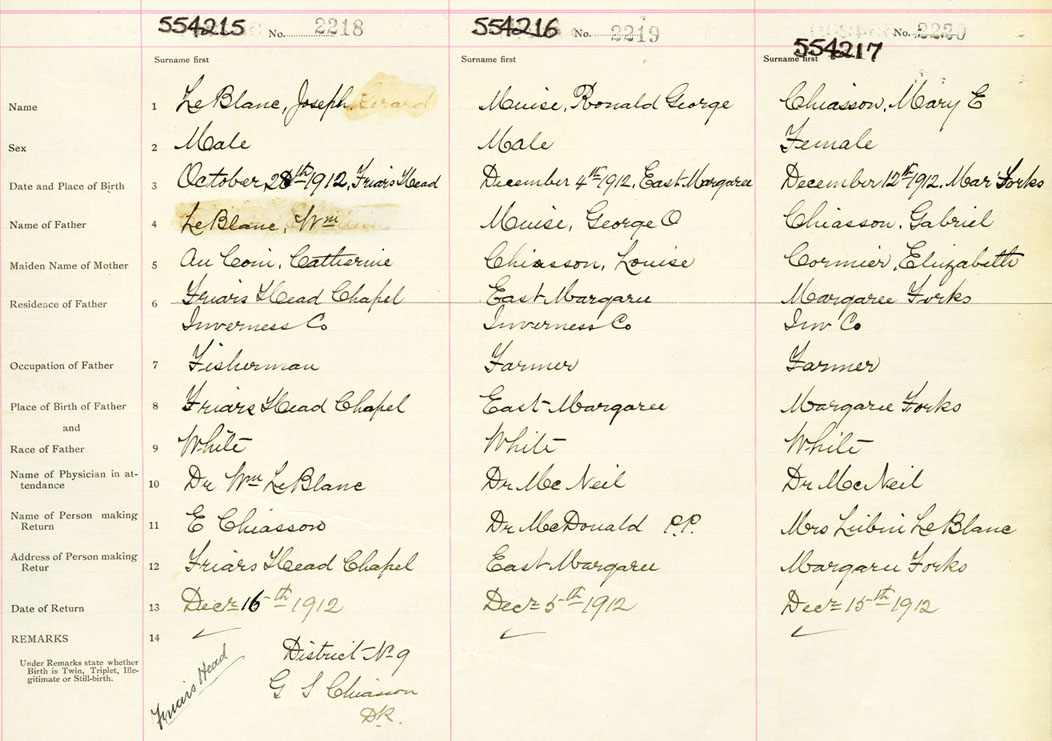 554215 No. 2218 554216 No. 2219 554217 No. 2220
Surname first Surname first Surname first
Name 1 LeBlanc, Joseph Gerard Muise, Ronald George Chiasson, Mary E
Sex 2 Male Male Female
Date and Place of Birth 3 October 28th 1912, Friars Head December 4th 1912, East Margaree December 12th 1912, Mar Forks
Name of Father 4 LeBlanc, Wm Muise, George O Chiasson, Gabriel
Maiden Name of Mother 5 Au Coin, Catherine Chiasson, Louise Cormier, Elizabeth
Residence of Father 6 Friars Head Chapel East Margaree Margaree Forks
Inverness Co Inverness Co Inv Co
Occupation of Father 7 Fisherman Farmer Farmer
Place of Birth of Father 8 Friars Head Chapel East Margaree Margaree Forks
and
Race of Father 9 White White White
Name of Physician in at-
tendance 10 Dr Wm LeBlanc Dr McNeil Dr McNeil
Name of Person making
Return 11 E Chiasson Dr McDonald P.P. Mrs Lubin LeBlanc
Address of Person making
Retur 12 Friars Head Chapel East Margaree Margaree Forks
Date of Return 13 Dec 16th 1912 Dec 5th 1912 Dec 15th 1912
REMARKS 14
Under Remarks state whether
Birth is Twin, Triplet, Ille-
gitimate or Still-birth.
Friars Head
District No 9
G S Chiasson
D.R.